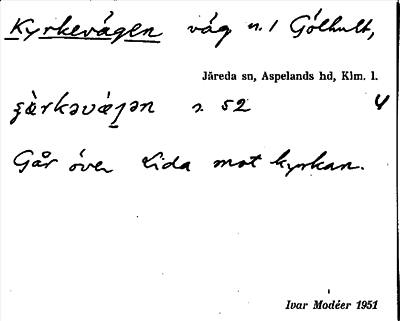 Kyrkevägen väg n. 1 Gölhult,
Järeda sn, Aspelands hd, Klm. l.
s. 52 4
Går över Lida mot kyrkan.
Ivar Modéer 1951